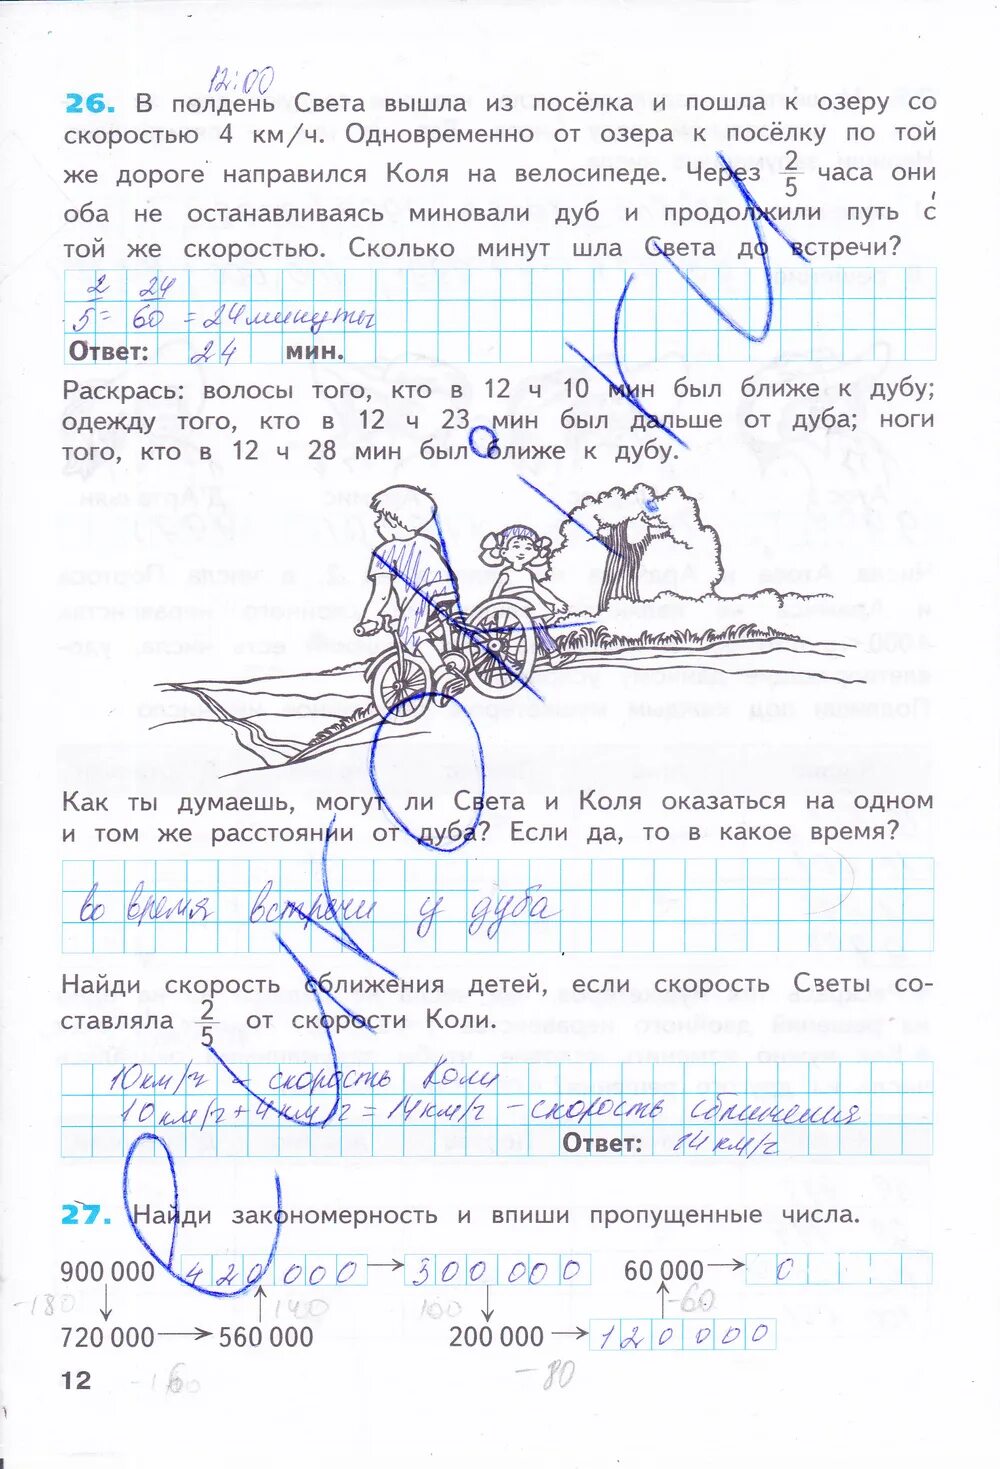 12:00
26. В полдень Света вышла из посёлка и пошла к озеру со
скоростью 4 км/ч. Одновременно от озера к посёлку по той
же дороге направился Коля на велосипеде. Через 2/5 часа они
оба не останавливаясь миновали дуб и продолжили путь с
той же скоростью. Сколько минут шла Света до встречи?
2/5 = 24/60 = 24 минуты
Ответ: 24 мин.
Раскрась: волосы того, кто в 12 ч 10 мин был ближе к дубу;
одежду того, кто в 12 ч 23 мин был дальше от дуба; ноги
того, кто в 12 ч 28 мин был ближе к дубу.
Как ты думаешь, могут ли Света и Коля оказаться на одном
и том же расстоянии от дуба? Если да, то в какое время?
во время встречи у дуба
Найди скорость сближения детей, если скорость Светы со-
ставляла 2/5 от скорости Коли.
10км/ч - скорость Коли
10км/ч+4км/ч = 14км/ч - скорость сближения
Ответ: 14км/ч
27. Найди закономерность и впиши пропущенные числа.
900 000 420 000 → 300 000 60 000 → 0
-180 140 100 -60
720 000 → 560 000 200 000 → 120 000
12 -80